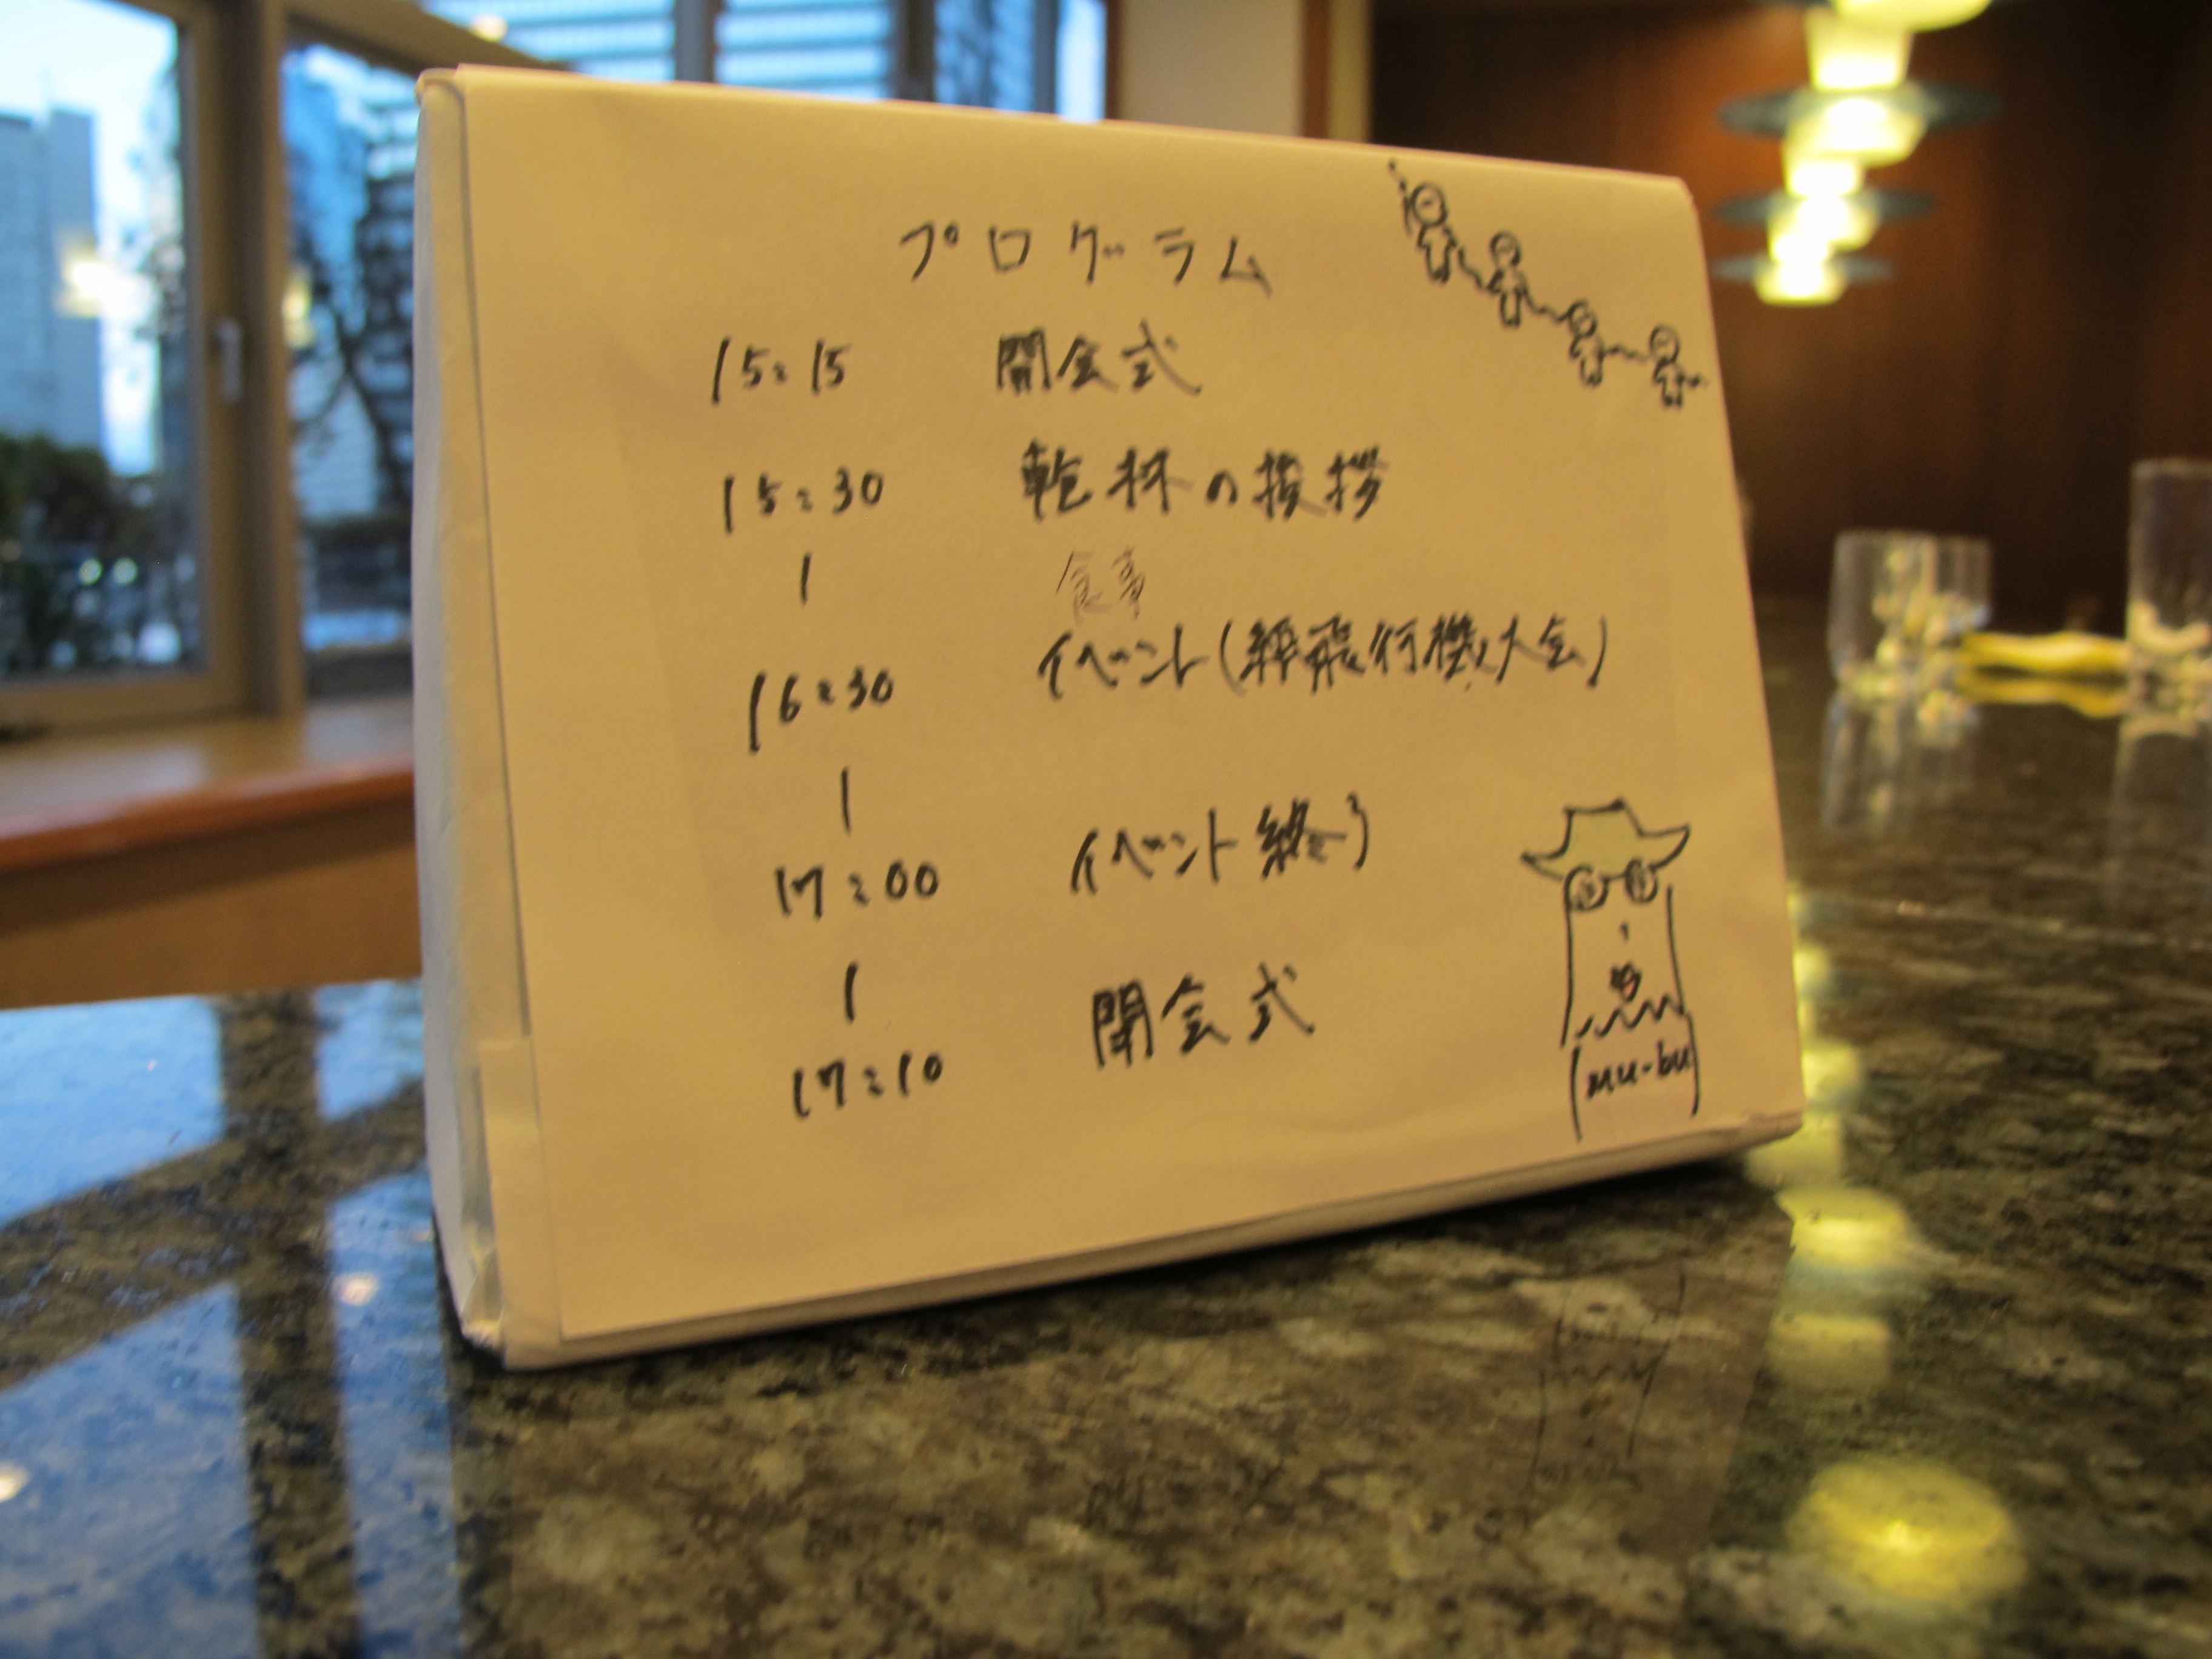 プログラム
15:15 開会式
15:30 乾杯の挨拶
| 食事
16:30 イベント(紙飛行機大会)
|
17:00 イベント終了
|
17:10 閉会式
mu-bu